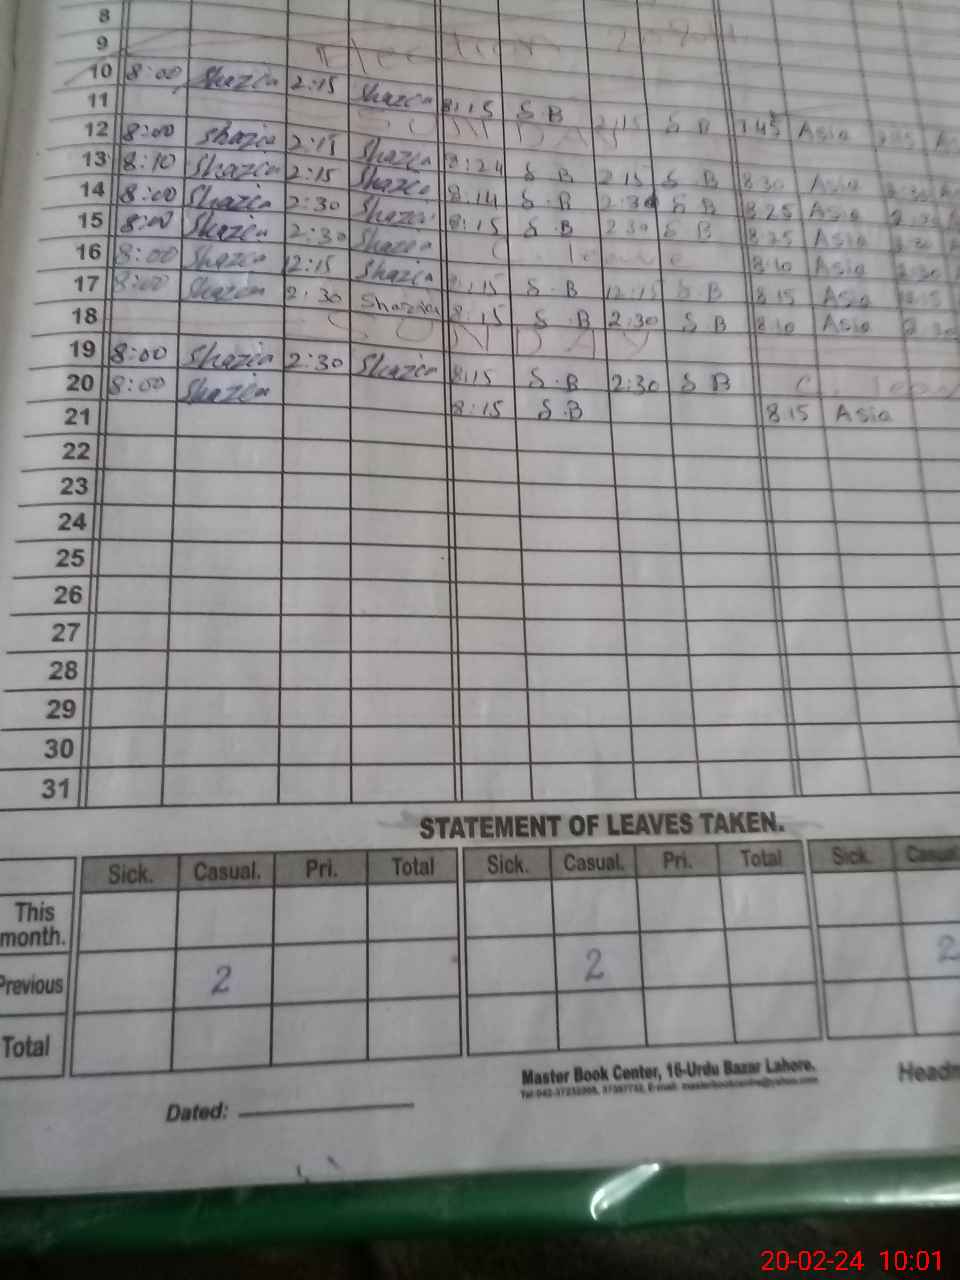 8
9
10 8:00 Shazia 2:15 Shazia 8:15 S.B 2:15 S B 7.45 Asia
11 SUNDAY
12 8:00 Shazia 2:15 Shazia 8:24 S B 2 15 S B 8 30 Asia
13 8:10 Shazia 2:15 Shazia 8:14 S B 2:30 S B 8.25 Asia
14 8:00 Shazia 2:30 Shazia 8:15 S.B 2 30 S B 8.25 Asia
15 8:00 Shazia 2:30 Shazia C. leave 8:10 Asia
16 8:00 Shazia 12:15 Shazia 8:15 S.B 12:15 S.B 8 15 Asia
17 8:00 Shazia 2:30 Shazia 8:15 S.B 2:30 S B 8:10 Asia
18 SUNDAY
19 8:00 Shazia 2:30 Shazia 8:15 S.B 2:30 S B C leave
20 8:00 Shazia 8:15 S.B 8.15 Asia
21
22
23
24
25
26
27
28
29
30
31
STATEMENT OF LEAVES TAKEN.
Sick. Casual. Pri. Total Sick. Casual. Pri. Total Sick. Casual
This month.
Previous 2 2 2
Total
Master Book Center, 16-Urdu Bazar Lahore.
Headm
Dated:
20-02-24 10:01